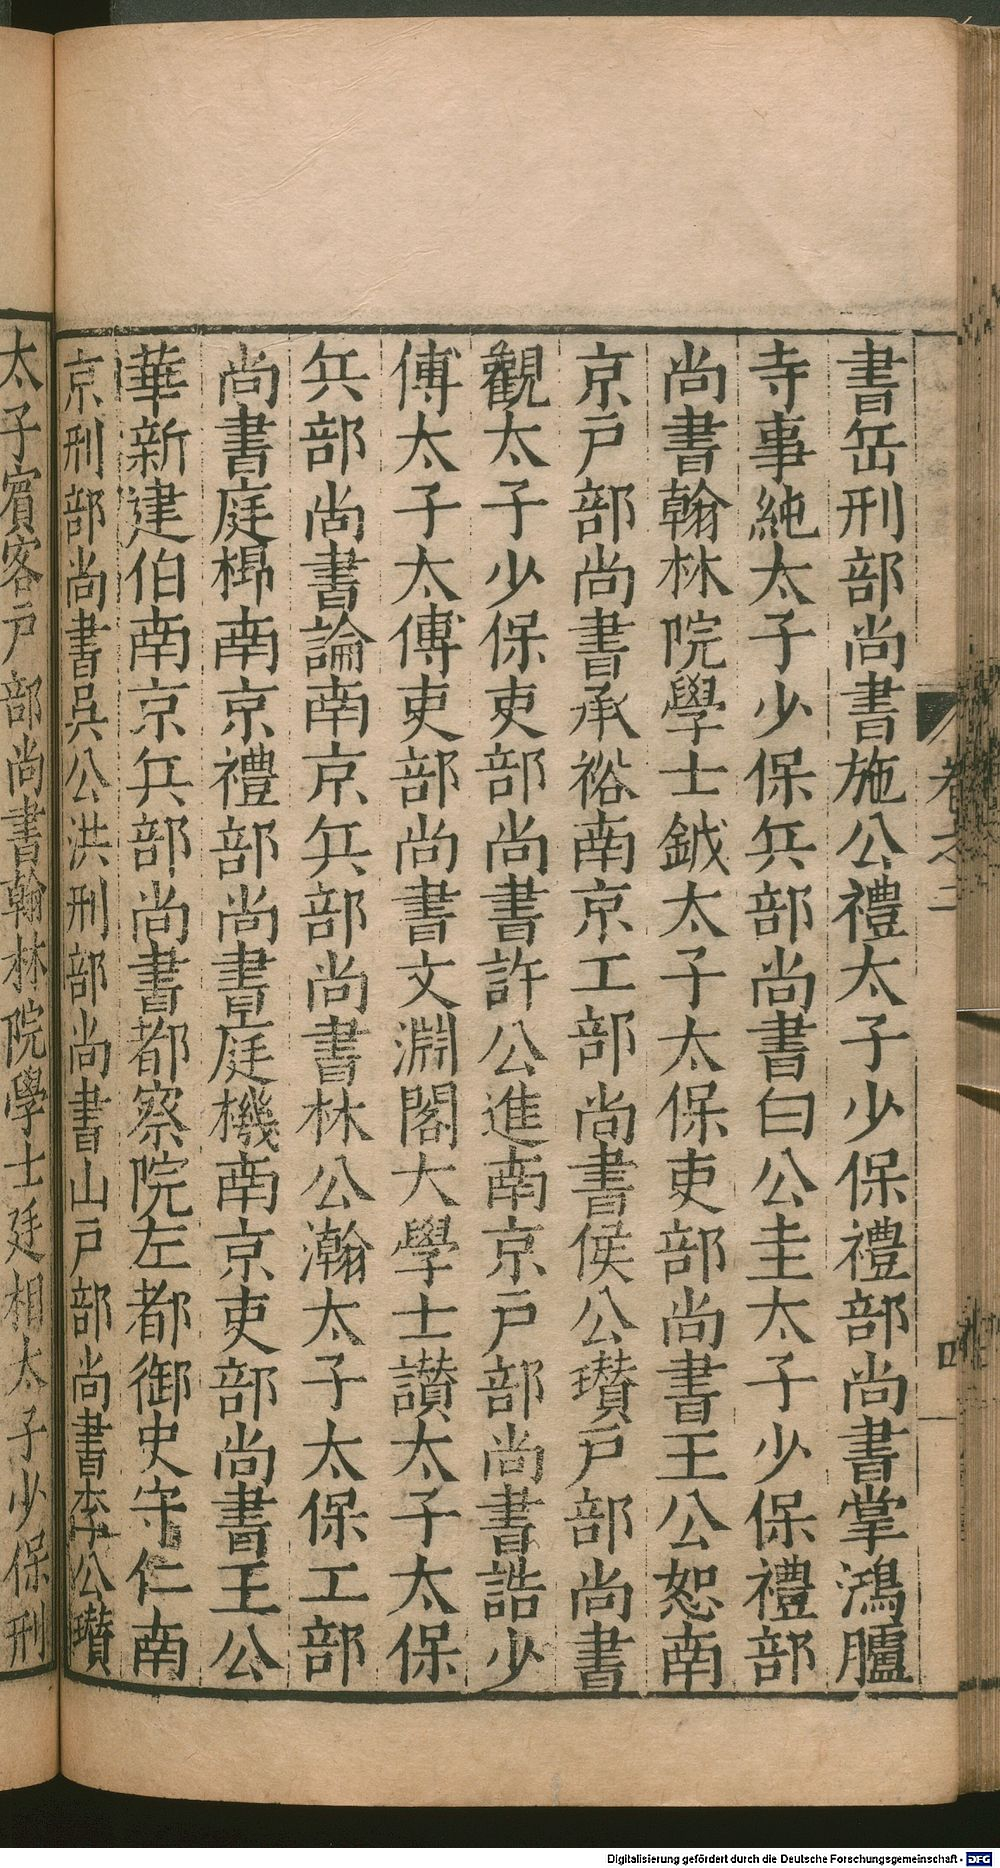 書岳刑部尚書施公禮太子少保禮部尚書掌鴻臚
寺事純太子少保兵部尚書白公圭太子少保禮部
尚書翰林院學士鉞太子太保吏部尚書王公恕南
京戶部尚書承裕南京工部尚書侯公瓚戶部尚書
觀太子少保吏部尚書許公進南京戶部尚書誥少
傅太子太傅吏部尚書文淵閣大學士讚太子太保
兵部尚書論南京兵部尚書林公瀚太子太保工部
尚書庭㭿南京禮部尚書庭機南京吏部尚書王公
華新建伯南京兵部尚書都察院左都御史守仁南
京刑部尚書吳公洪刑部尚書山戶部尚書李公瓚
太子賓客戶部尚書翰林院學士廷相太子少保刑
卷之二
四
Digitalisierung gefördert durch die Deutsche Forschungsgemeinschaft - DFG